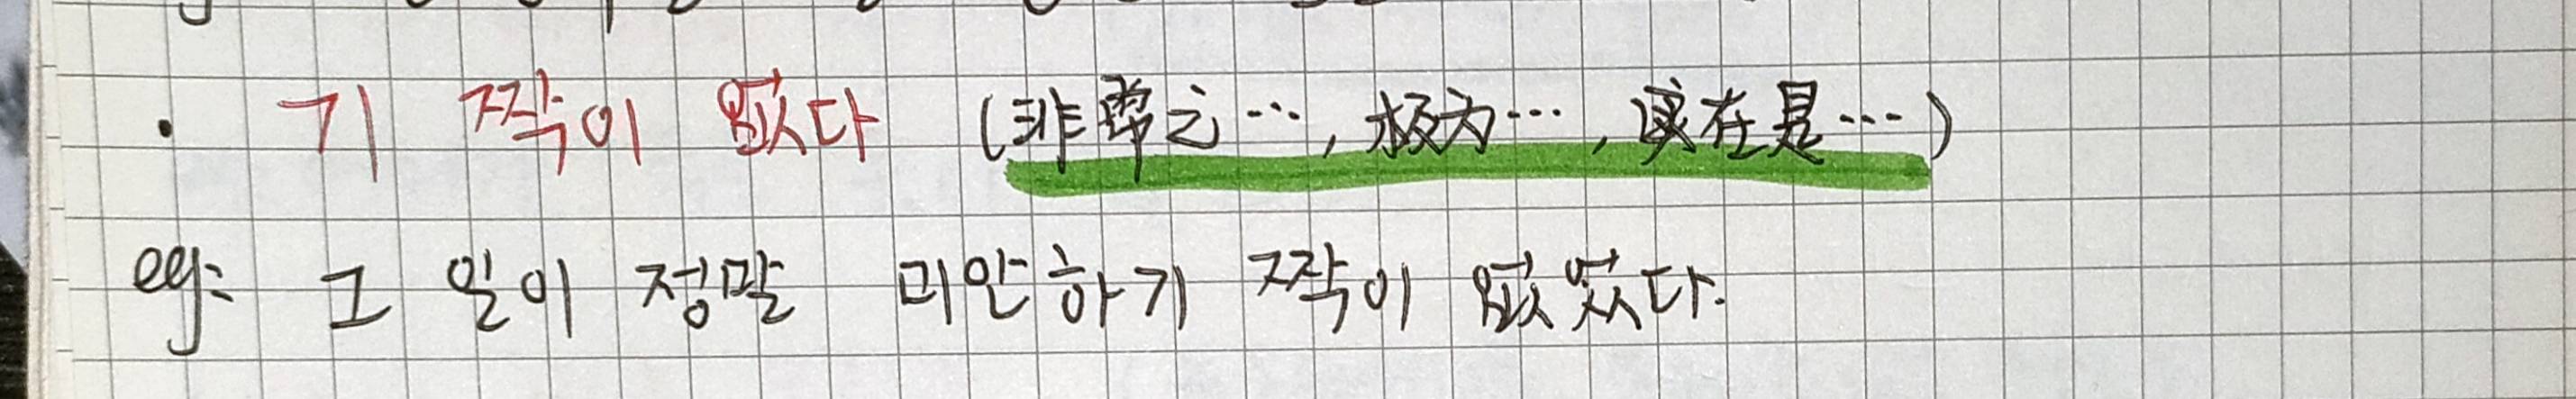 · 기 짝이 없다 (非常之…, 极为…, 实在是…)
eg: 그 일이 정말 미안하기 짝이 없었다.